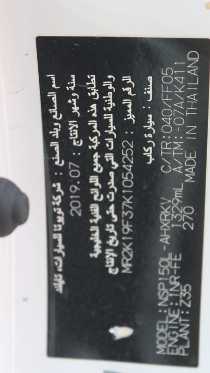 اسم الصانع وبلد الصنع : شركة تويوتا للسيارات، تايلاند
سنة وشهر الإنتاج : 2019.07
تطابق هذه المركبة جميع اللوائح الفنية الخليجية
والوطنية للسيارات التي صدرت حتى تاريخ الإنتاج
الرقم المميز : MR2K19F37K1054252
صنف : سيارة ركاب
MODEL:NSP150L-AHXRKV C/TR:040/FF05
ENGINE:1NR-FE 1329mL A/TM:-07A/K411
PLANT:Z35 270 MADE IN THAILAND